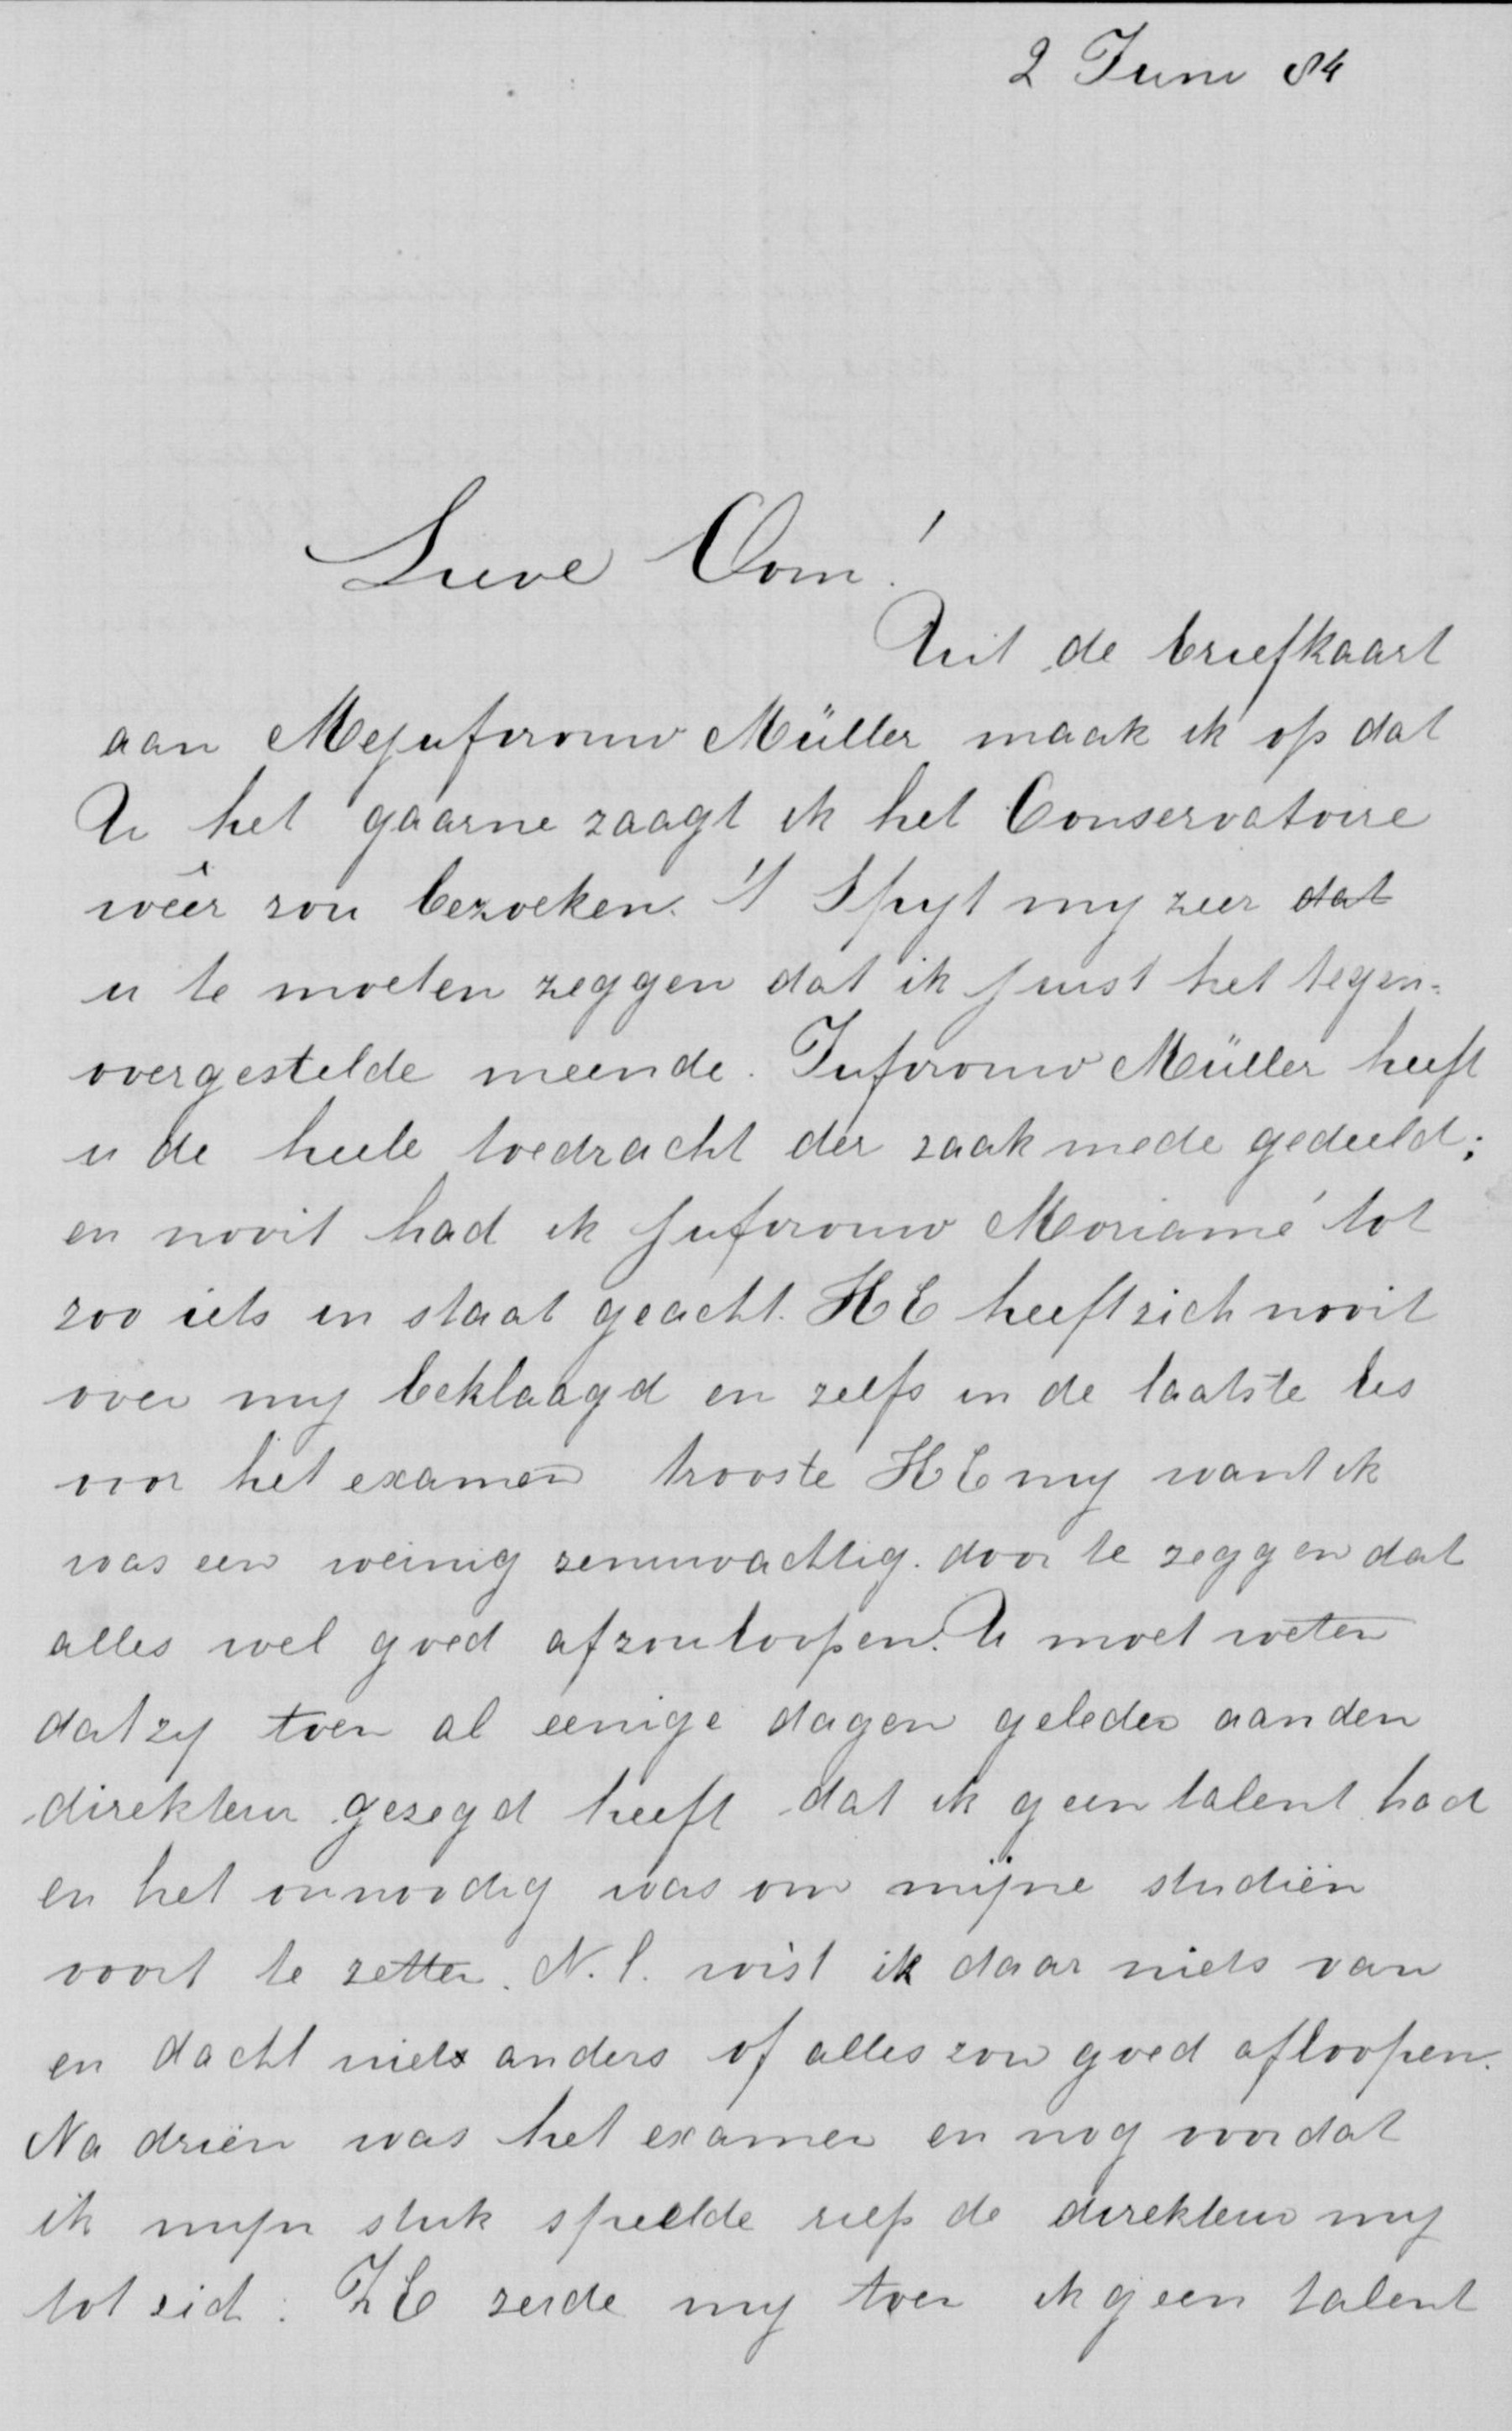 2 Juni 84
Lieve Oom!
Uit de briefkaart
aan Mejufvrouw Müller maak ik op dat
U het gaarne zaagt ik het Conservatoire
wêer zou bezoeken. 't Spyt my zeer dat
u te moeten zeggen dat ik juist het tegen-
overgestelde meende. Jufvrouw Müller heeft
u de heele toedracht der zaak mede gedeeld;
en nooit had ik jufvrouw Moriamé tot
zoo iets in staat geacht. HE heeft zich nooit
over my beklaagd en zelfs in de laatste les
voor het examen trooste HE my want ik
was een weinig zenuwachtig. door te zeggen dat
alles wel goed afzou loopen. U moet weten
dat zy toen al eenige dagen geleden aan den
direkteur gezegd heeft dat ik geen talent had
en het onnoodig was om mijne studiën
voort te zetten. N.l. wist ik daar niets van
en dacht niets anders of alles zou goed afloopen.
Na driën was het examen en nog voordat
ik mijn stuk speelde riep de direkteur my
tot zich. ZE zeide my toen ik geen talent